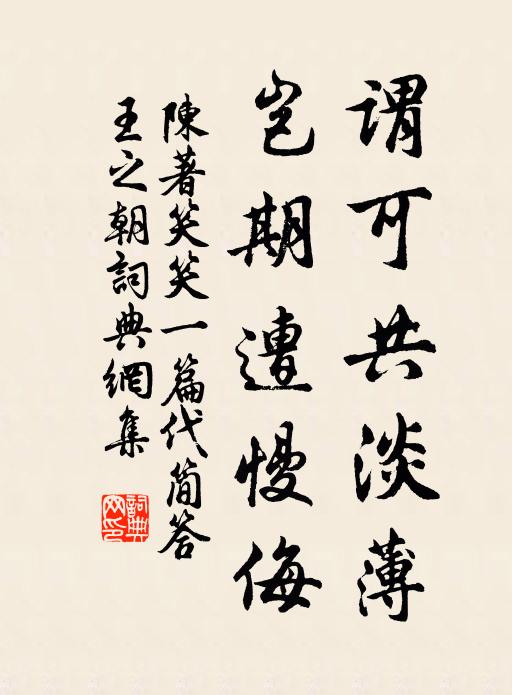 謂可共淡薄
豈期遭慢侮
陳著笑笑一篇代簡答
王之朝詞典網集
詞典網印